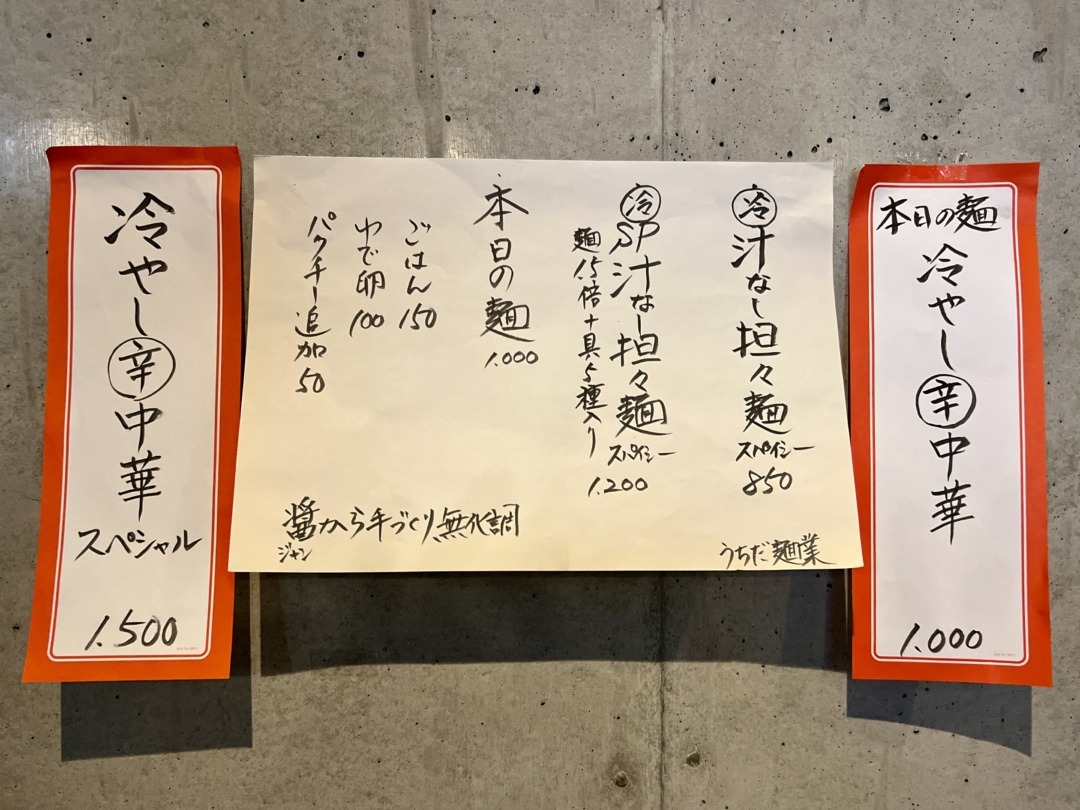 本日の麺
冷やし㊛中華
1.000
㊡汁なし担々麺
スパイシー
850
㊡SP汁なし担々麺
スパイシー
1.200
麺1.5倍+具5種入り
本日の麺
1.000
ごはん150
ゆで卵100
パクチー追加50
醤から手づくり、無化調
ジャン
うちだ麺業
冷やし辛中華
スペシャル
1.500